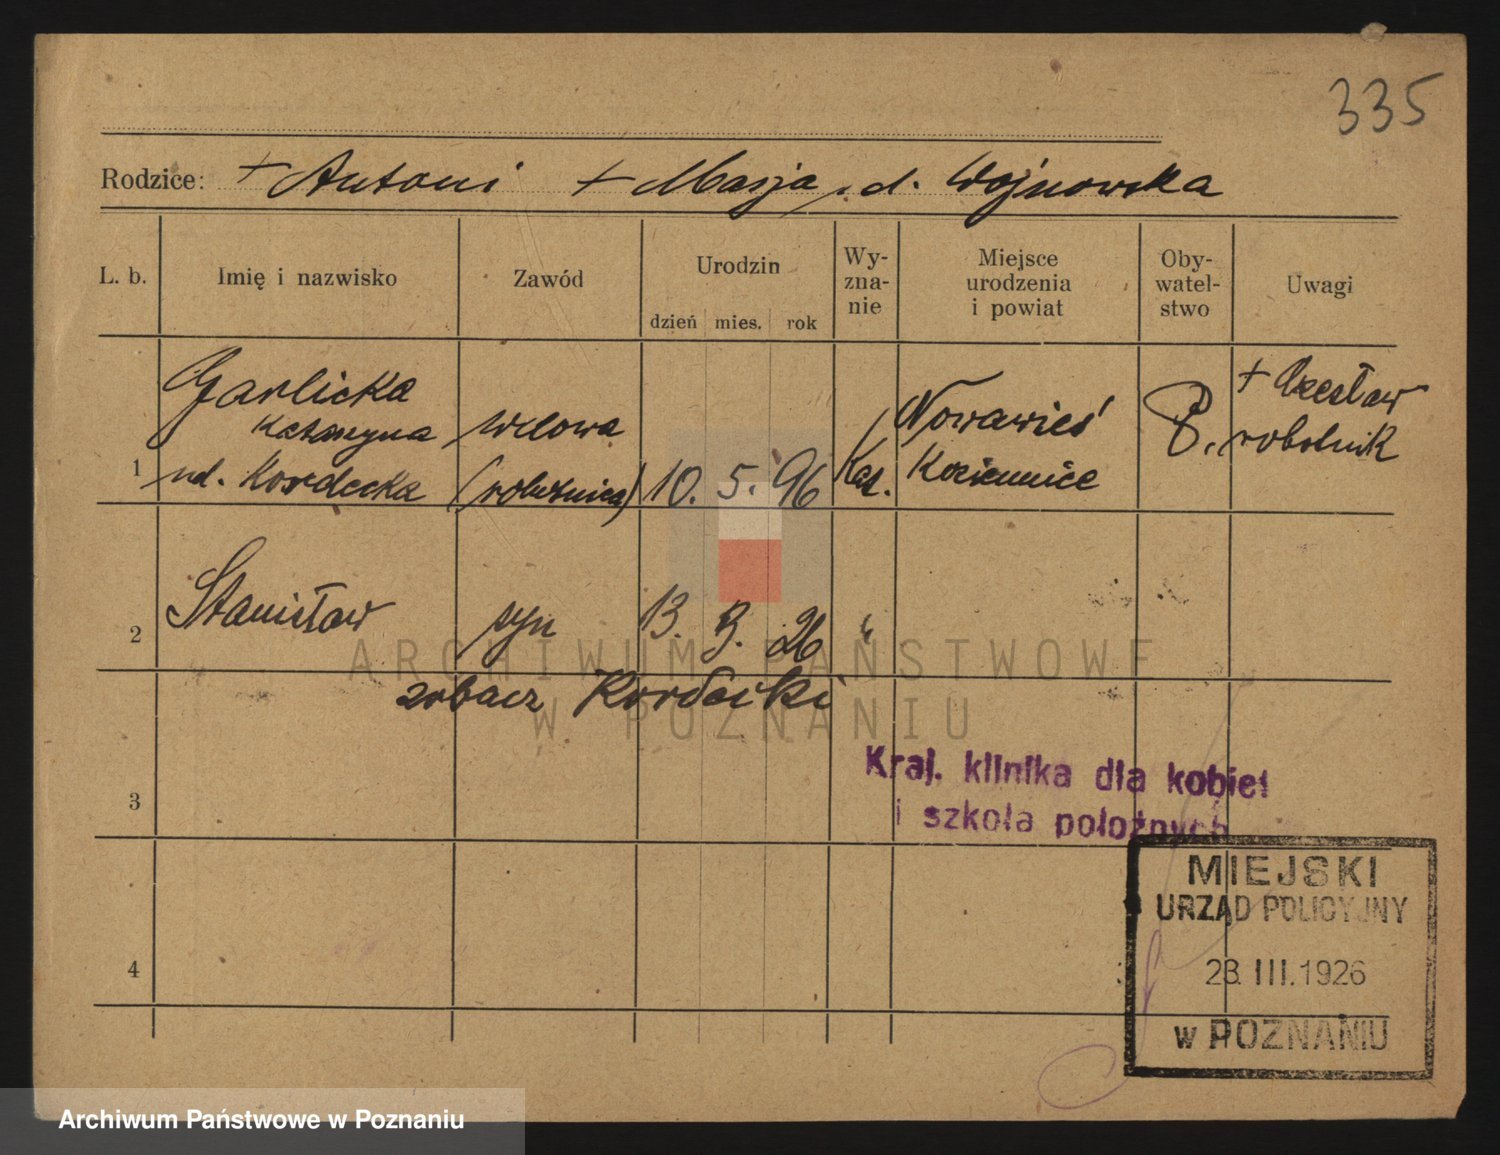 335
Rodzice: + Antoni + Marja, d. Wojnowska
L. b. Imię i nazwisko Zawód Urodzin dzień mies. rok Wy-zna-nie Miejsce urodzenia i powiat Oby-watel-stwo Uwagi
Garlicka
Katarzyna
1 ud. Kordecka
wdowa
(robotnica)
10. 5. 96
Kat.
Nowawieś
Kozienice
P.
+ Czesław
robotnik
2 Stanisław syn 13. 3. 26 "
zobacz Kordecki
3
4
Kraj. klinika dla kobiet
i szkoła położnych
MIEJSKI
URZĄD POLICYJNY
23. III. 1926
w POZNANIU
ARCHIWUM PAŃSTWOWE
W POZNANIU
Archiwum Państwowe w Poznaniu